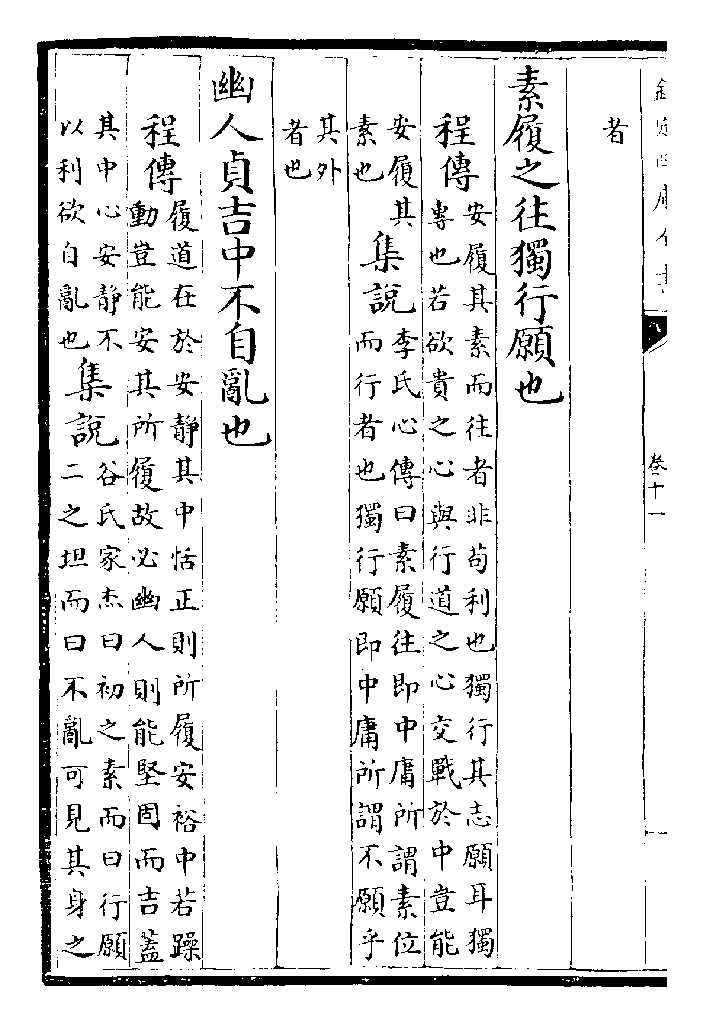 欽定四庫全書
卷十一
者
素履之往獨行願也
程傳安履其素而往者非苟利也獨行其志願耳獨
專也若欲貴之心與行道之心交戰於中豈能
安履其
素也集說李氏心傳曰素履往即中庸所謂素位
而行者也獨行願即中庸所謂不願乎
其外
者也
幽人貞吉中不自亂也
程傳履道在於安靜其中恬正則所履安裕中若躁
動豈能安其所履故必幽人則能堅固而吉蓋
其中心安靜不
以利欲自亂也集說谷氏家杰曰初之素而曰行願
二之坦而曰不亂可見其身之